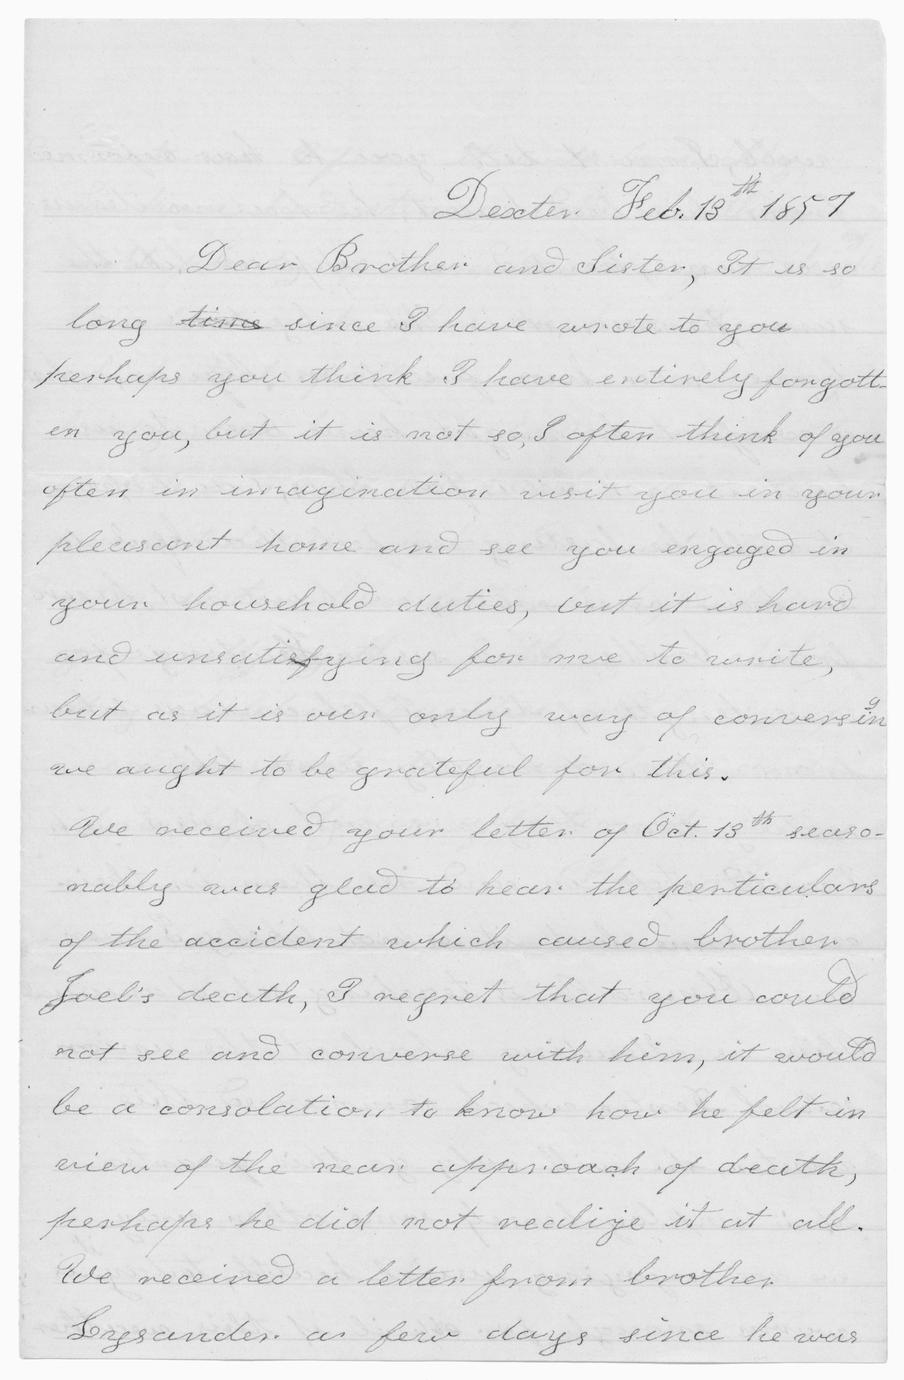 Dexter Feb. 13th 1857
Dear Brother and Sister, It is so
long time since I have wrote to you
perhaps you think I have entirely forgott-
en you, but it is not so, I often think of you
often in imagination visit you in your
pleasant home and see you engaged in
your household duties, but it is hard
and unsatisfying for me to write,
but as it is our only way of conversing
we aught to be grateful for this.
We received your letter of Oct. 13th seaso-
nably was glad to hear the perticulars
of the accident which caused brother
Joel's death, I regret that you could
not see and converse with him, it would
be a consolation to know how he felt in
view of the near approach of death,
perhaps he did not realize it at all.
We received a letter from brother
Lysander a few days since he was